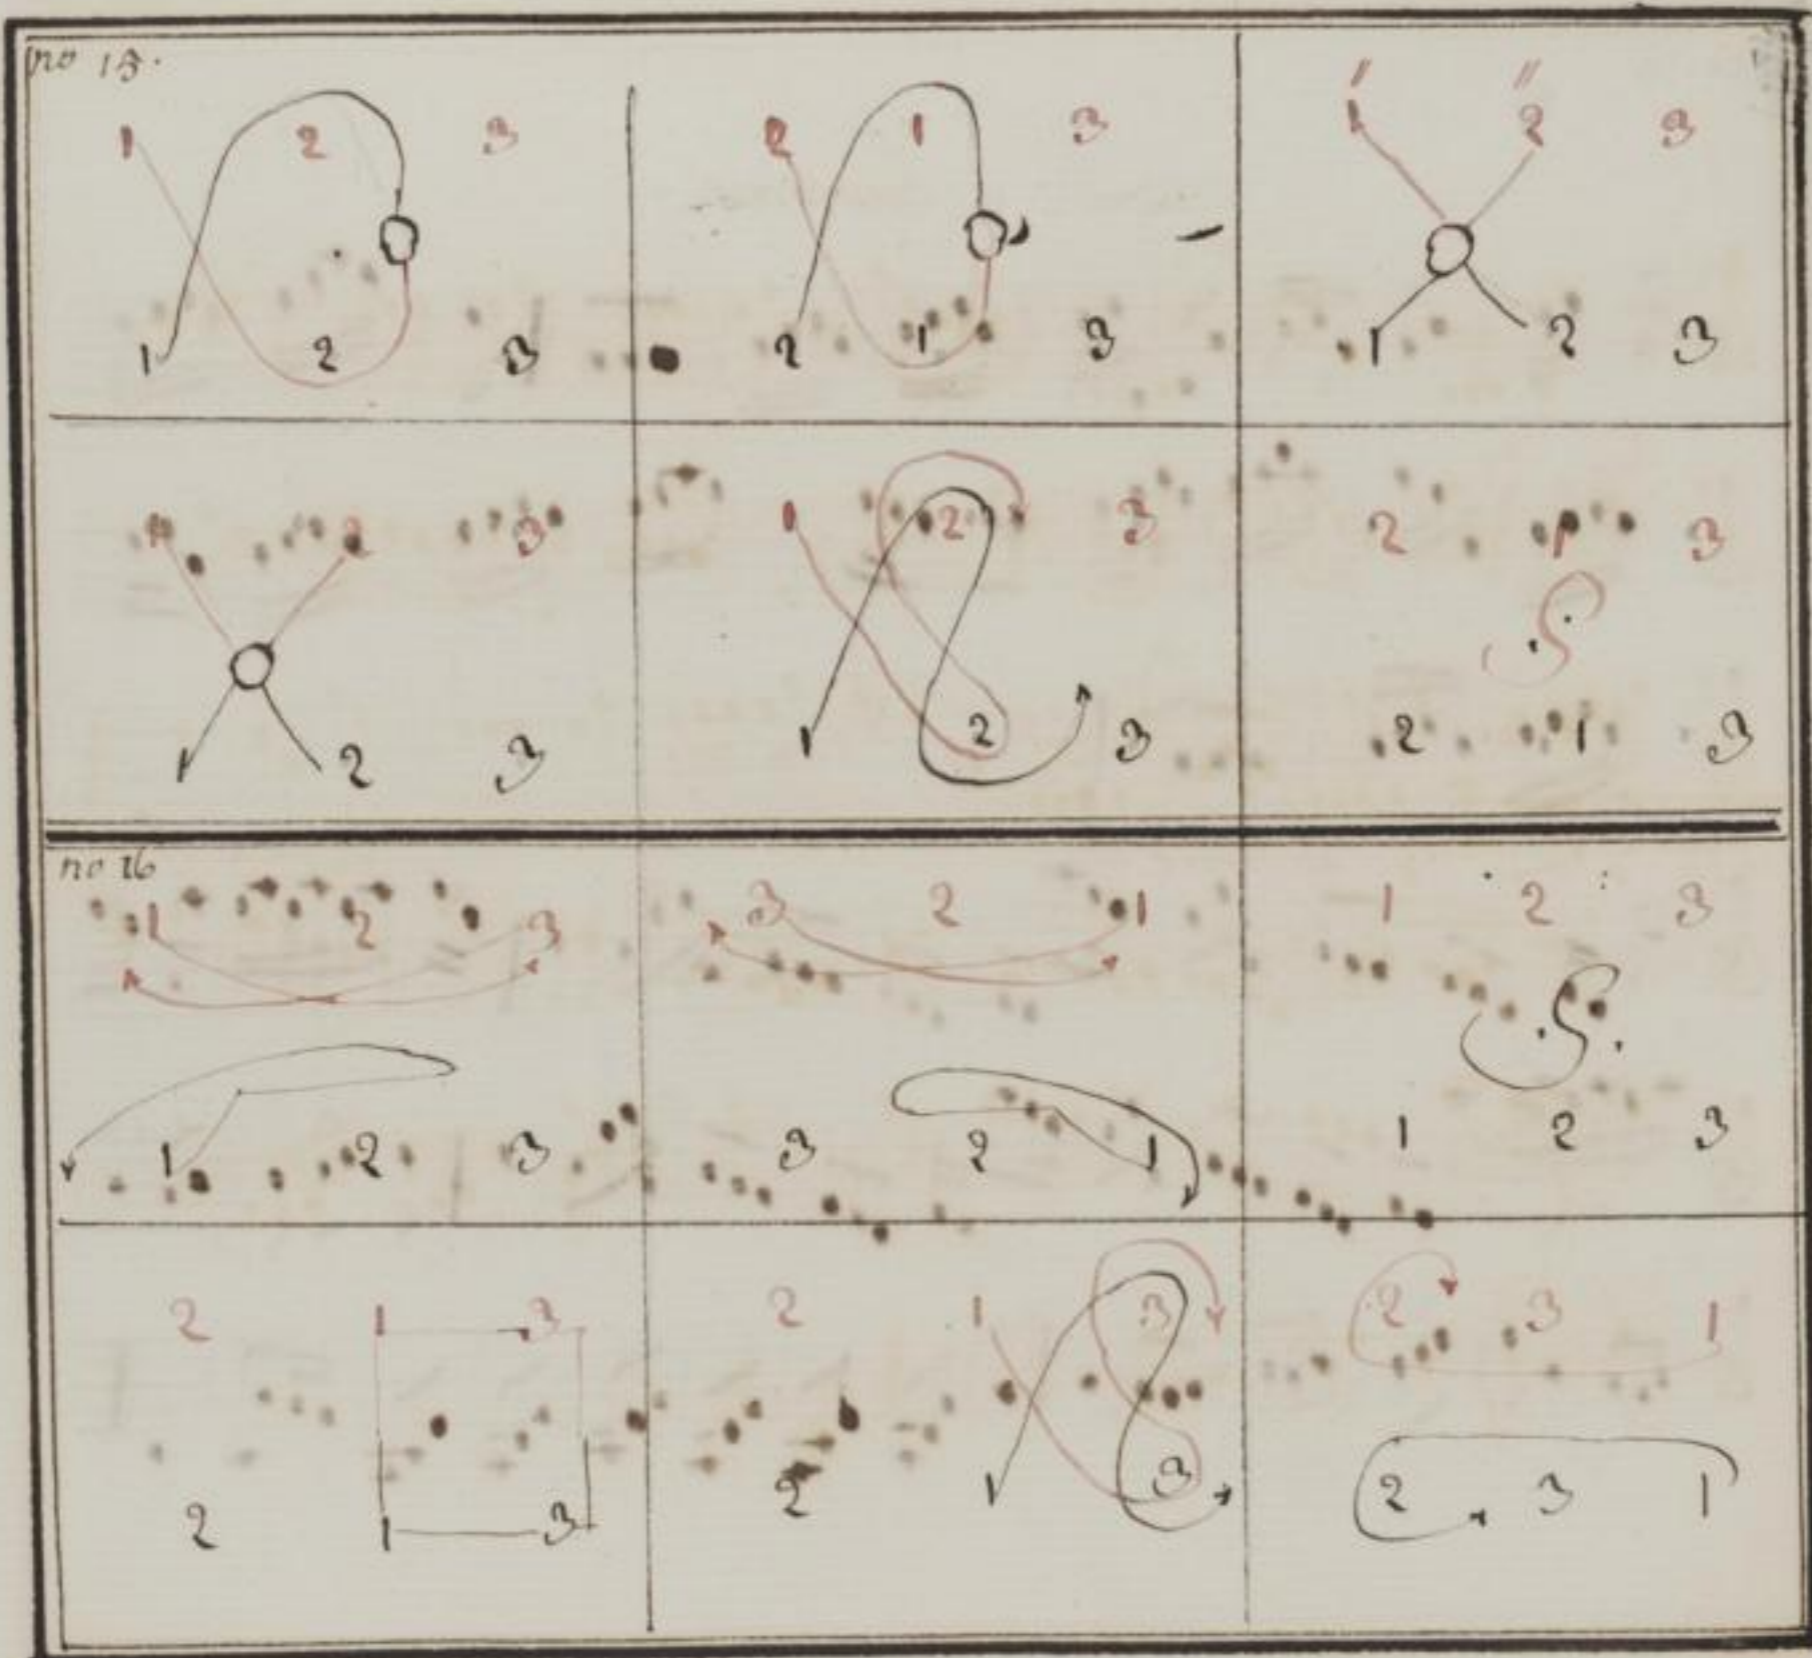 no 15.
1 2 3
1 2 3
2 1 3
2 1 3
1 2 3
1 2 3
1 2 3
1 2 3
1 2 3
1 2 3
2 1 3
2 1 3
no 16
1 2 3
1 2 3
3 2 1
3 2 1
1 2 3
1 2 3
2 1 3
2 1 3
2 1 3
2 1 3
2 3 1
2 3 1